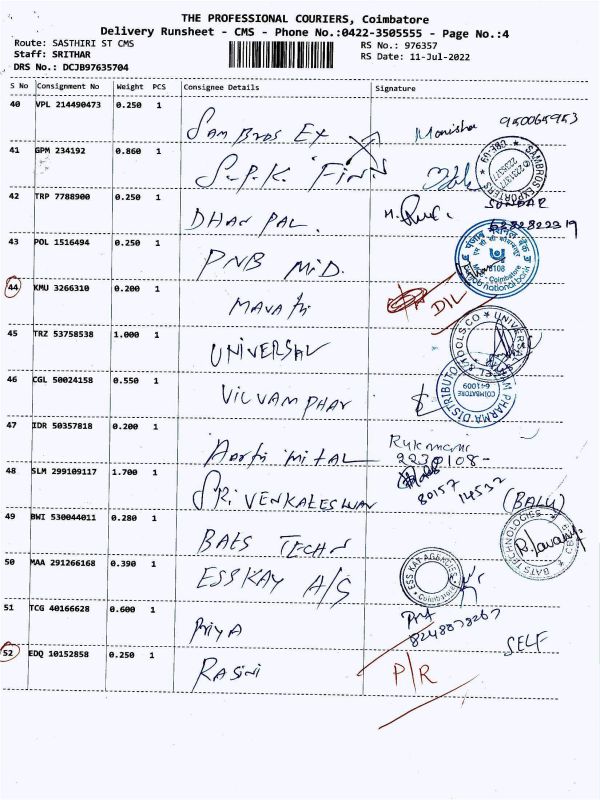 THE PROFESSIONAL COURIERS, Coimbatore
Delivery Runsheet - CMS - Phone No.:0422-3505555 - Page No.:4
Route: SASTHIRI ST CMS
Staff: SRITHAR
DRS No.: DCJB97635704
RS No.: 976357
RS Date: 11-Jul-2022
S No Consignment No Weight PCS Consignee Details Signature
40 VPL 214490473 0.250 1
SAM BROS EX Monisha 950065953
41 GPM 234192 0.860 1
S.P.K. FIN
SAMBROS EXPORTERS
42 TRP 7788900 0.250 1
SUNDAR
DHAN PAL.
43 POL 1516494 0.250 1
PNB MID.
पंजाब नैशनल बैंक
Coimbatore
national bank
44 KMU 3266310 0.200 1
D/L
45 TRZ 53758538 1.000 1
UNIVERSAL
TOOLS CO
46 CGL 50024158 0.550 1
VILVAM PHAR
PHARMA DISTRIBUTO
COIMBATORE
641009
47 IDR 50357818 0.200 1
Rukmani
2230108-
48 SLM 299109117 1.700 1
SRI VENKALESWAR
80157 14537
(BALU)
49 BWI 530044011 0.280 1
BATS TECHN
BATS TECHNOLOGIES
50 MAA 291266168 0.390 1
ESSKAY A/S
ESS KAY AGENCIES
Coimbatore
51 TCG 40166628 0.600 1
PRIYA
8248078267
52 EDQ 10152858 0.250 1
SELF
RASINI P/R